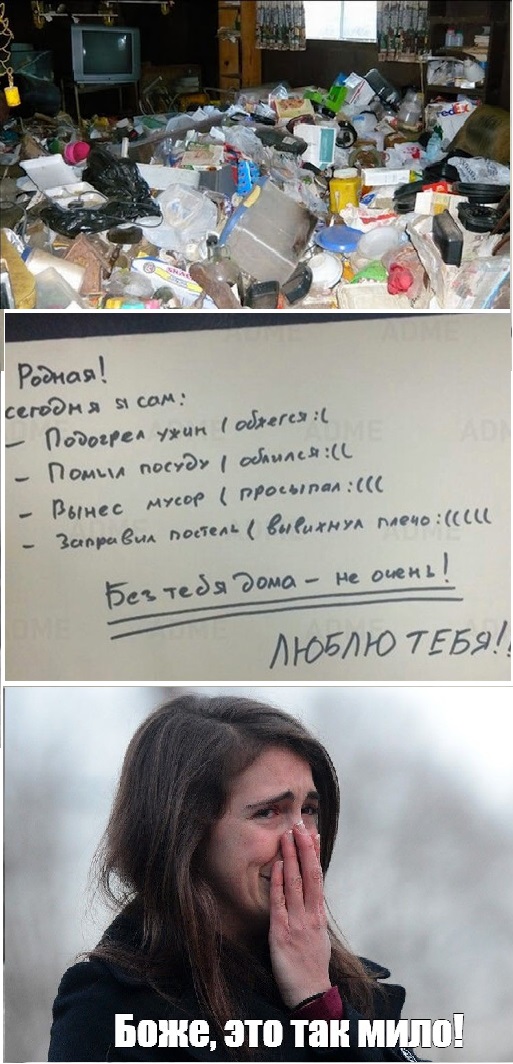 FedEx
ADME
Родная!
сегодня я сам:
– Подогрел ужин ( обжегся :(
– Помыл посуду ( облился :((
– Вынес мусор ( просыпал :(((
– Заправил постель ( вывихнул плечо :(((((
Без тебя дома – не очень!
ЛЮБЛЮ ТЕБЯ!!
Боже, это так мило!